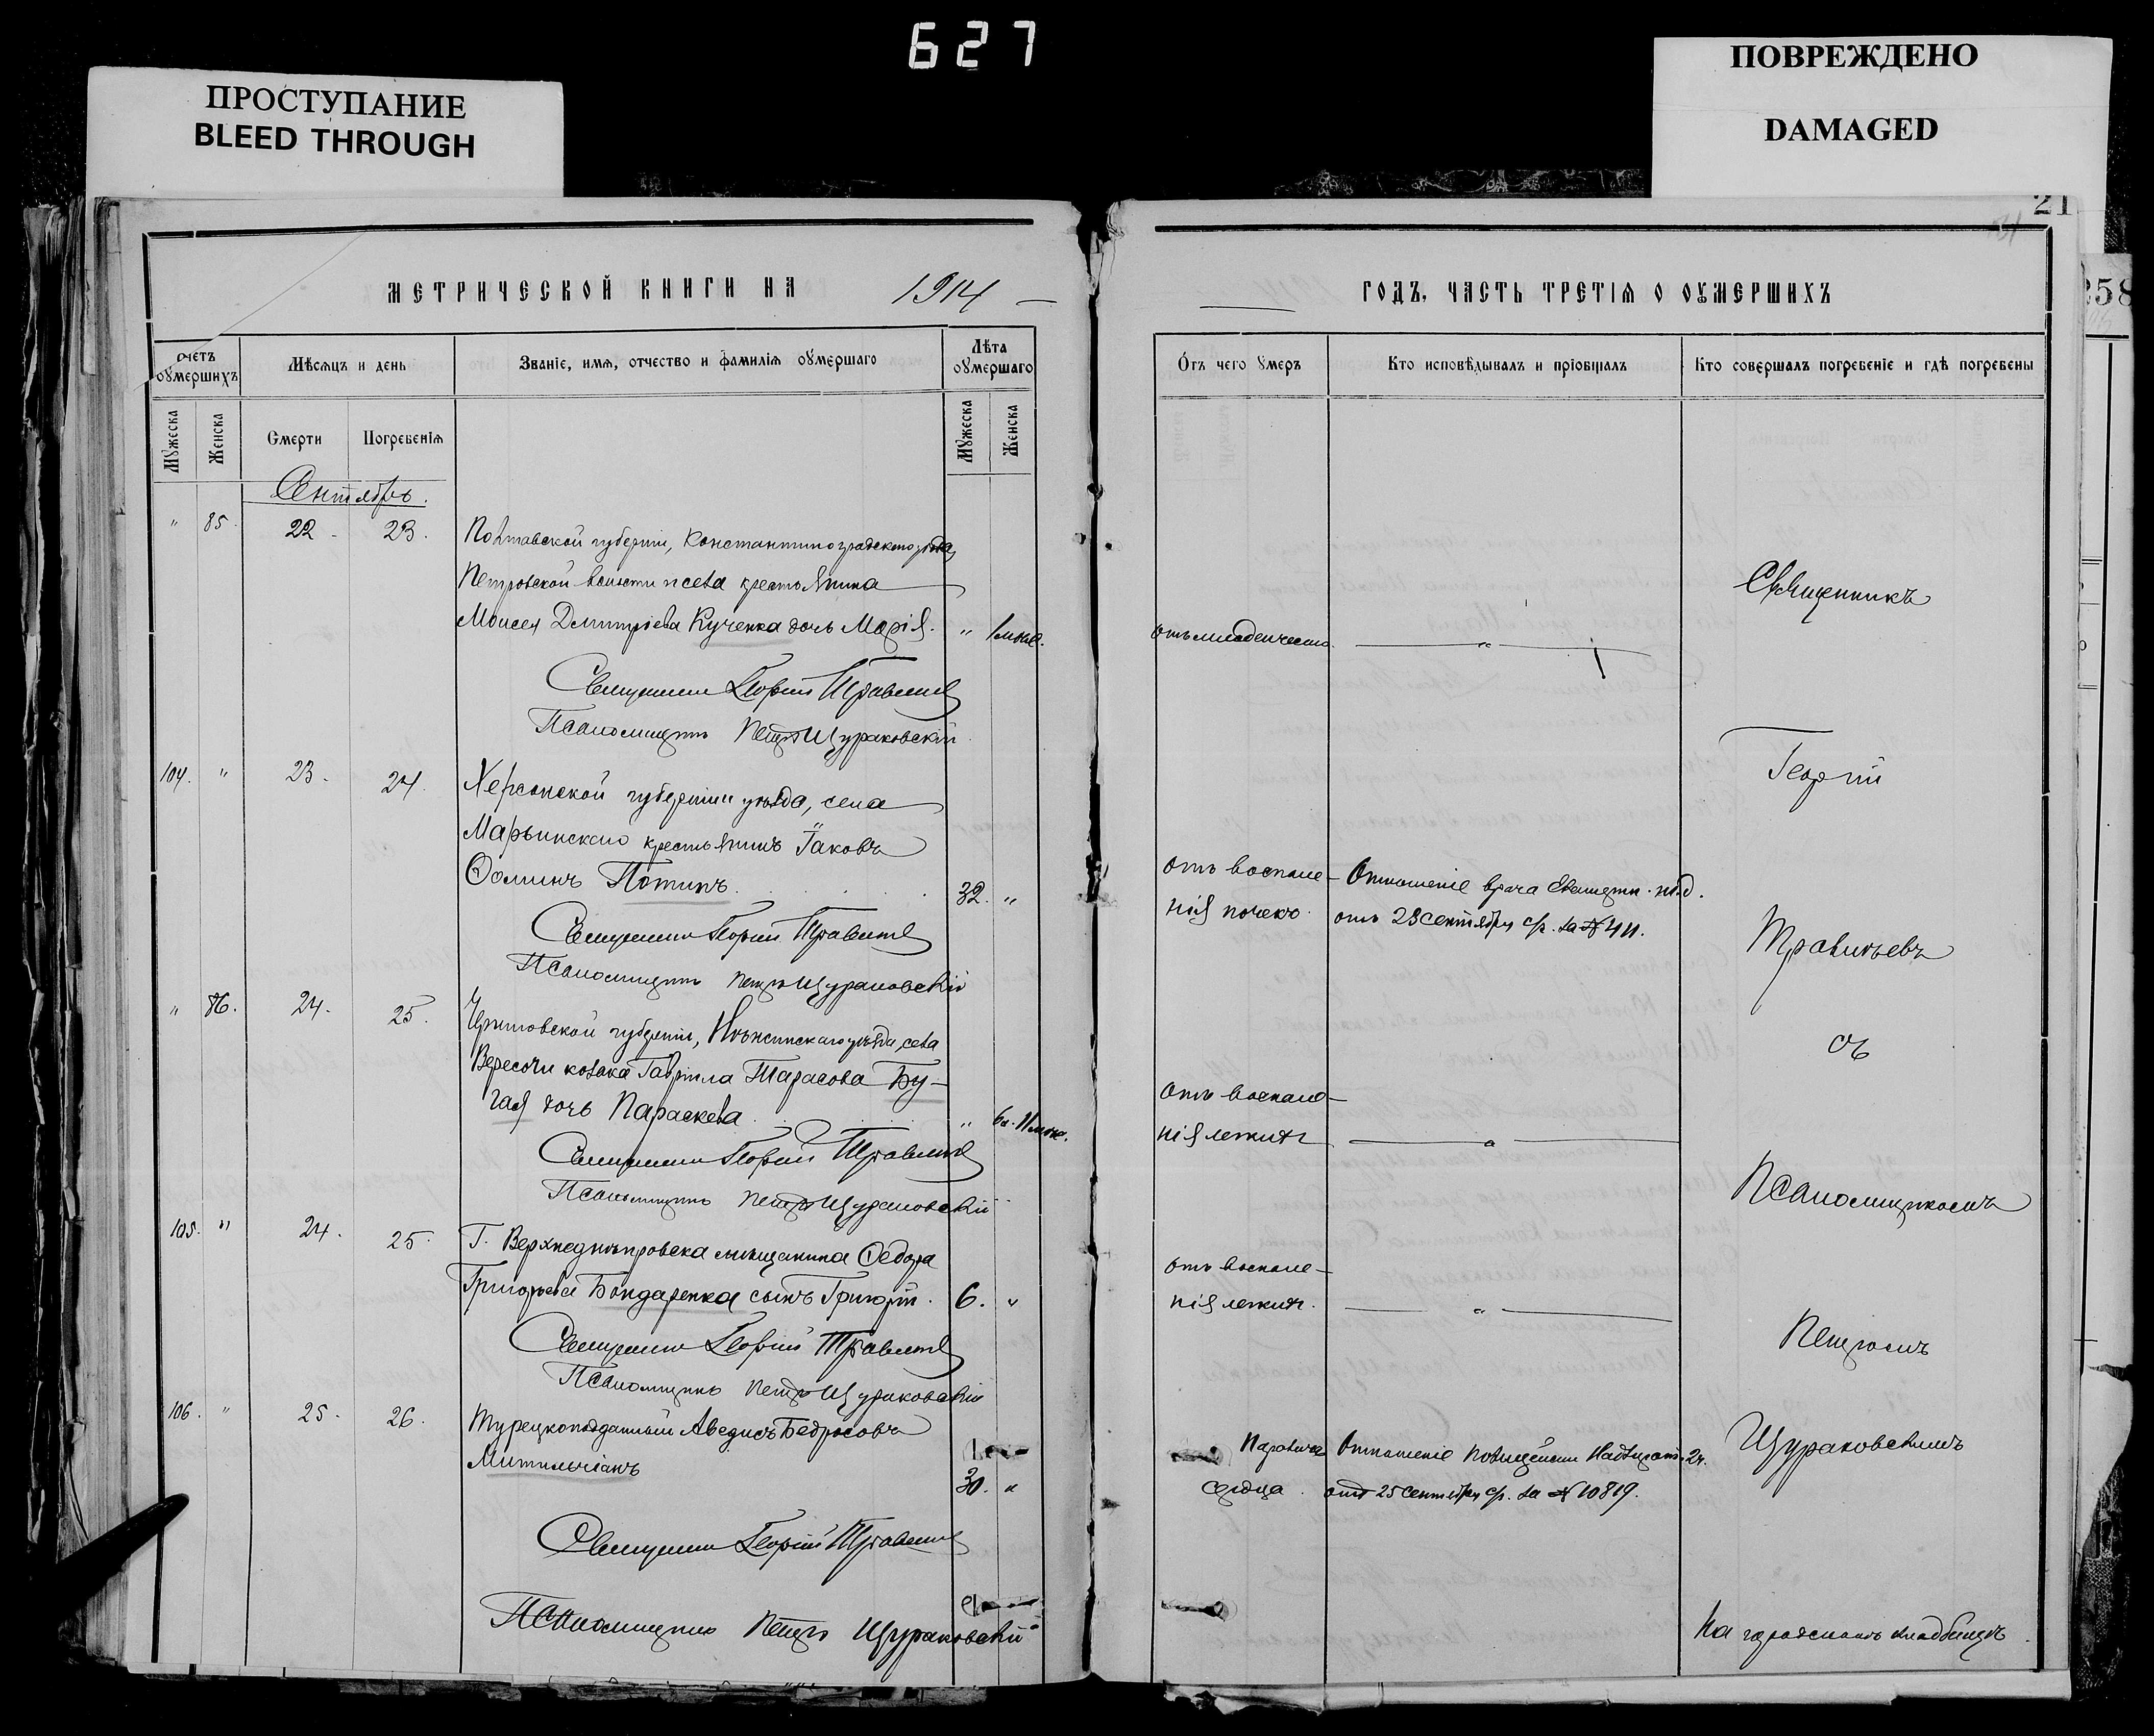 627
ПРОСТУПАНИЕ
BLEED THROUGH
ПОВРЕЖДЕНО
DAMAGED
21
258
МЕТРИЧЕСКОЙ КНИГИ НА 1914
ГОДЪ, ЧАСТЬ ТРЕТІЯ О ОУМЕРШИХЪ
Счетъ оумершихъ
Мѣсяцъ и день
Званіе, имя, отчество и фамилія оумершаго
Лѣта оумершаго
Отъ чего умеръ
Кто исповѣдывалъ и пріобщалъ
Кто совершалъ погребеніе и гдѣ погребены
Мужеска
Женска
Смерти
Погребенія
Мужеска
Женска
Сентябрь.
" 85. 22. 23. Полтавской губерніи, Константиноградскаго уѣзда,
Петровской волости и села крестьянина
Моисея Димитріева Кученка дочь Марія. " 1 мѣс. отъ младенчества "
Священникъ Георгій
Псаломщикъ Петръ Щураковскій
104. " 23. 24. Херсонской губерніи и уѣзда, села
Марьинскаго крестьянинъ Іаковъ
Ѳоминъ Потинъ. 32. "
отъ воспале-
нія почекъ.
Отношеніе врача
отъ 23 сентября с/г. за № 411.
Священникъ Георгій
Псаломщикъ Петръ Щураковскій
" 86. 24. 25. Черниговской губерніи, Нѣжинскаго уѣзда, села
Вересочи козака Гавріила Тарасова Бу-
гая дочь Параскева " 6 л. 11 мѣс.
отъ воспале-
нія легкихъ "
Священникъ Георгій
Псаломщикъ Петръ Щураковскій
105. " 24. 25. Г. Верхнеднѣпровска мѣщанина Ѳедора
Григорьева Бондаренка сынъ Григорій. 6. "
отъ воспале-
нія легкихъ. "
Священникъ Георгій
Псаломщикъ Петръ Щураковскій
106. " 25. 26. Турецкоподданный Аведисъ Бедросовъ
30. "
Параличъ
сердца.
Отношеніе
отъ 25 сентября с/г. за № 10819.
Священникъ Георгій
Псаломщикъ Петръ Щураковскій
Священникъ
Георгій
съ
Псаломщикомъ
Петромъ
Щураковскимъ
на городскомъ кладбищѣ.